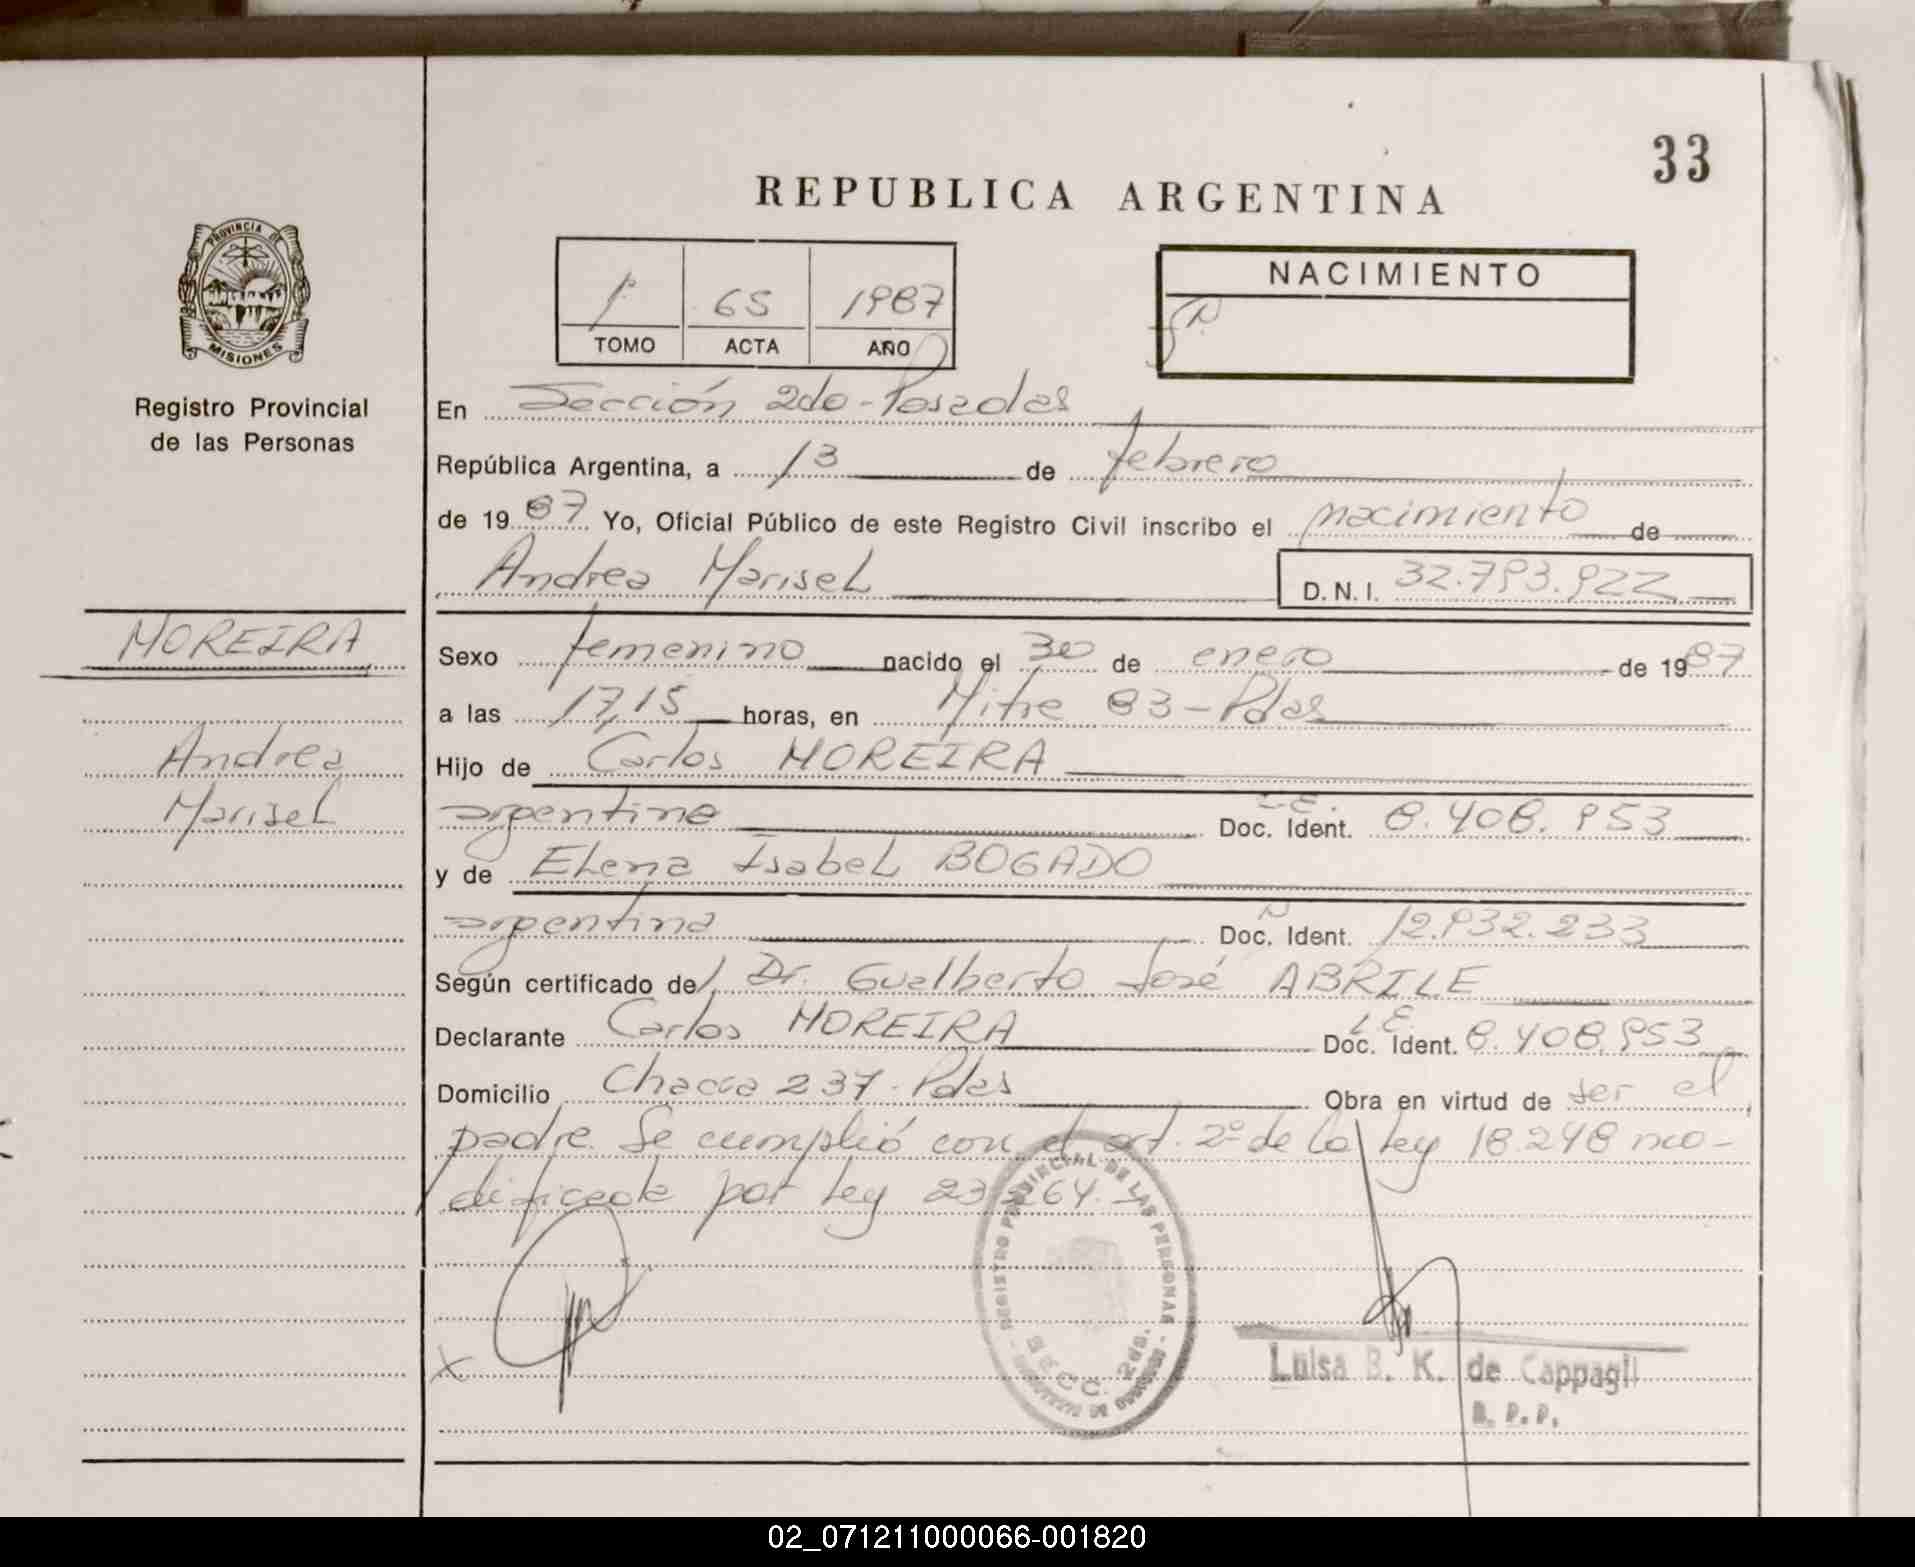 33
REPUBLICA ARGENTINA
PROVINCIA DE
MISIONES
Registro Provincial
de las Personas
1º 65 1987
TOMO ACTA AÑO
NACIMIENTO
En Sección 2da - Posadas
República Argentina, a 13 de febrero
de 1987 Yo, Oficial Público de este Registro Civil inscribo el nacimiento de
Andrea MariseL D.N.I. 32.793.922
MOREIRA
Andrea
MariseL
Sexo femenino nacido el 30 de enero de 1987
a las 17,15 horas, en Mitre 83 - Pdas
Hijo de Carlos MOREIRA
argentino L.E. Doc. Ident. 8.408.953
y de ELena IsabeL BOGADO
argentina Doc. Ident. 12.932.233
Según certificado del Dr. Gualberto José ABRILE
Declarante Carlos MOREIRA L.E. Doc. Ident. 8.408.953
Domicilio Chacra 237 - Pdas Obra en virtud de ser el
padre. Se cumplió con el art. 2º de la ley 18.248 mo-
dificada por ley 23.264.-
REGISTRO PROVINCIAL DE LAS PERSONAS
SECC. 2da.
Luisa B. K. de Cappagli
02_071211000066-001820